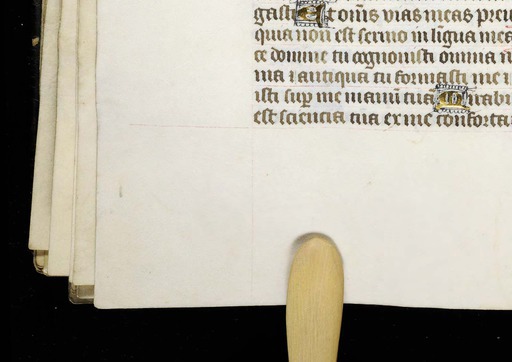 gasti Et om̅s vias meas previ
quia non est sermo in lingua mea
ce domine tu cognovisti omnia n
ma ⁊ antiqua tu formasti me ⁊
isti sup̲ me manū tuā Mirabi
est sciencia tua ex me confortat